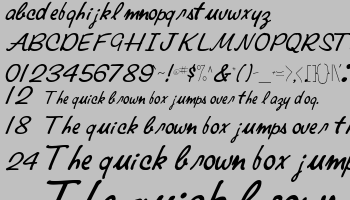 abcdefghijkl mnopqrstuvwxyz
ABCDEFGHIJKLMNOPQRST
0123456789
12 The quick brown box jumps over the lazy dog.
18 The quick brown box jumps over the
24 The quick brown box jump
The quick brown